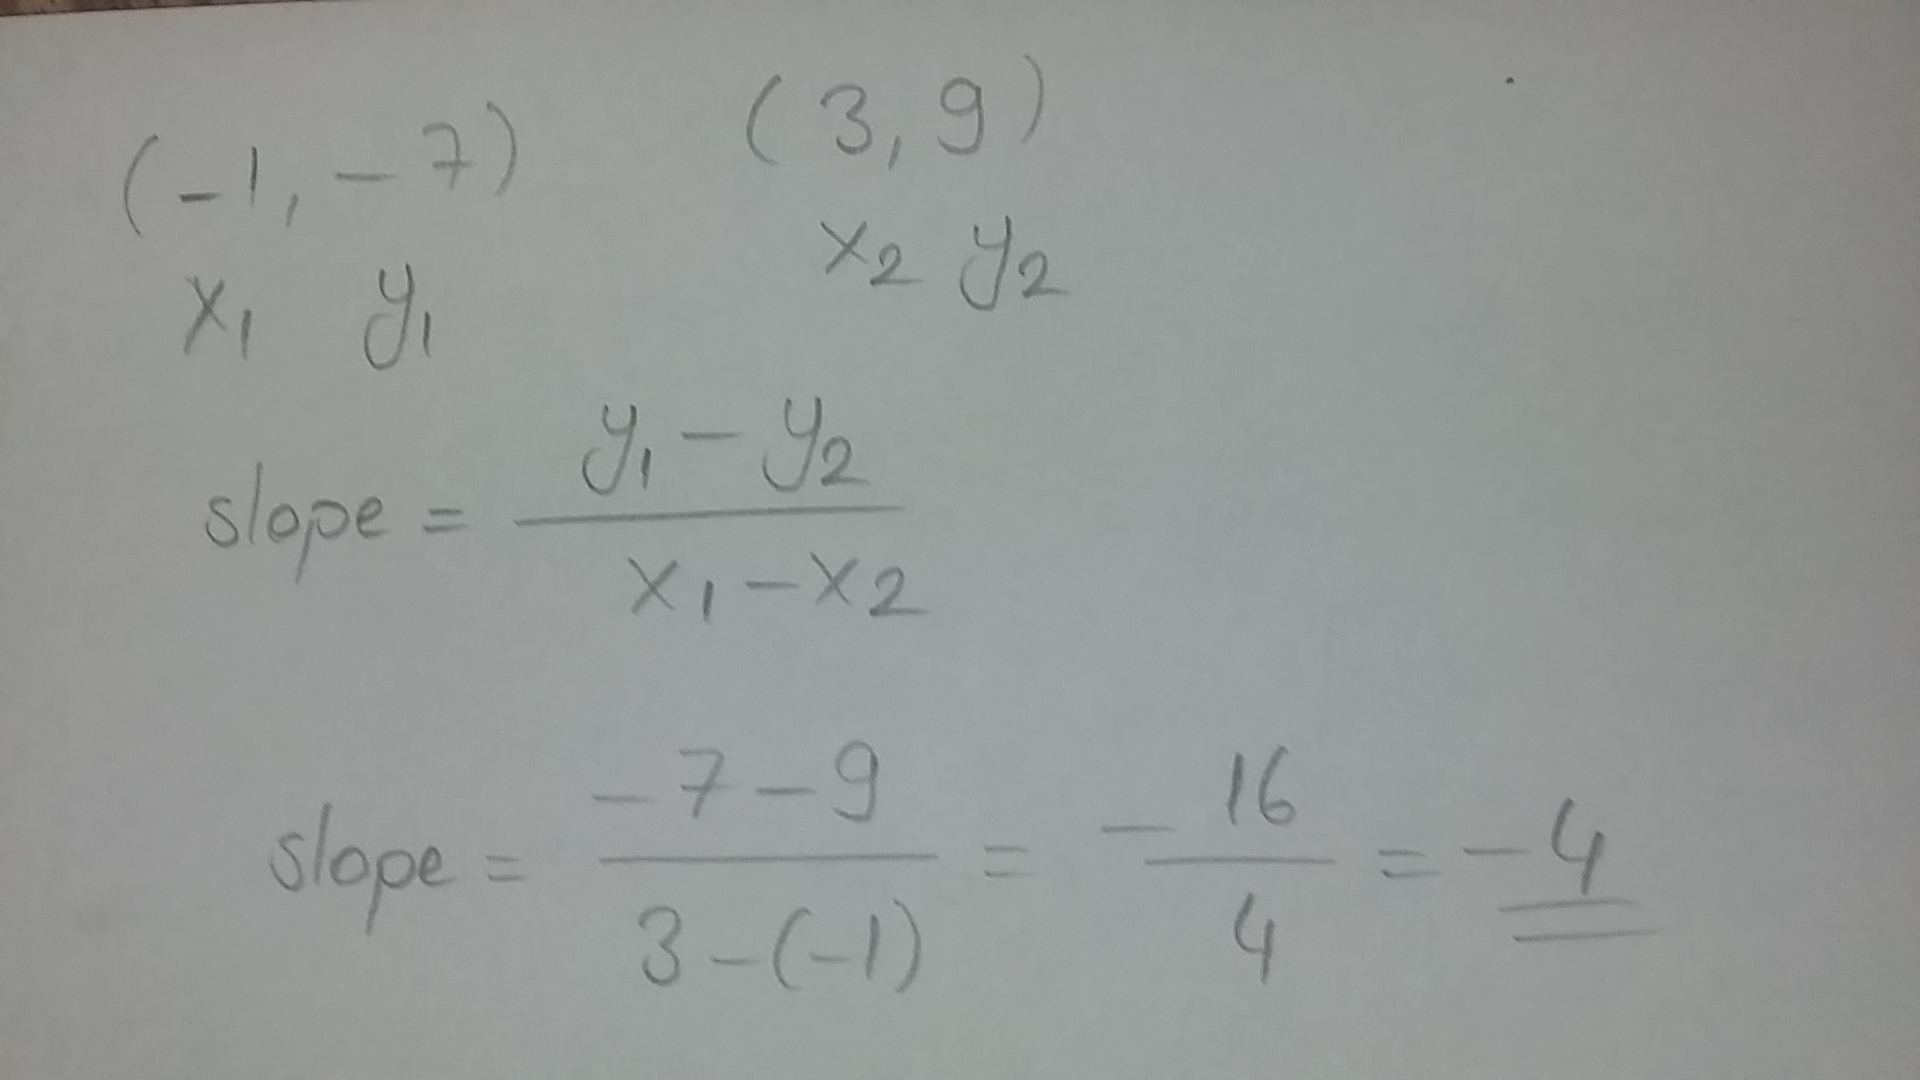 (-1, -7) (3, 9)
x₁ y₁ x₂ y₂
slope = (y₁ - y₂) / (x₁ - x₂)
slope = (-7 - 9) / (3 - (-1)) = - 16 / 4 = -4